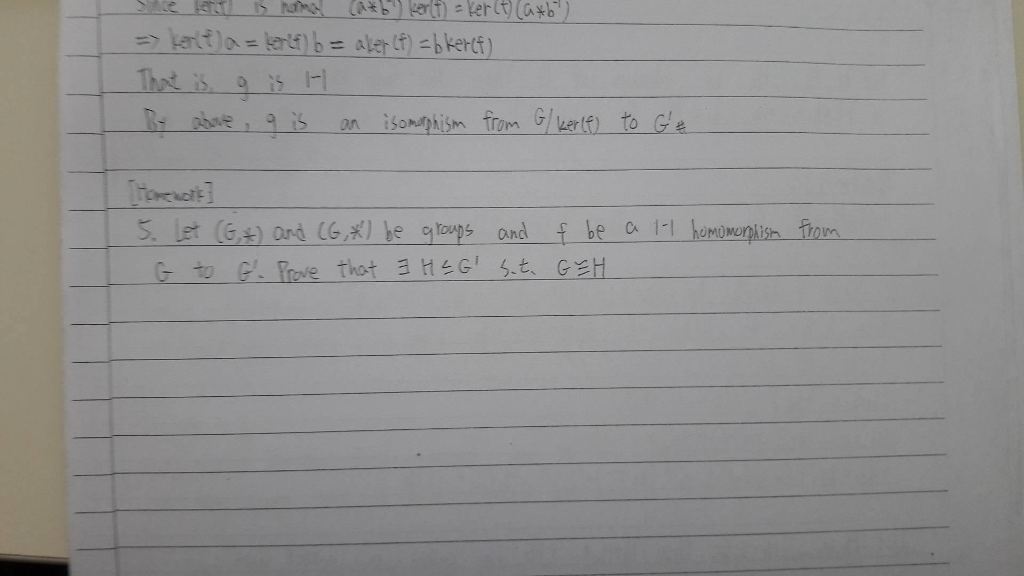 Since ker(f) is normal (a*b⁻¹) ker(f) = ker(f) (a*b⁻¹)
=> ker(f)a = ker(f)b = aker(f) = bker(f)
That is, g is 1-1
By above, g is an isomorphism from G/ker(f) to G'#
[Homework]
5. Let (G,*) and (G,*') be groups and f be a 1-1 homomorphism from
G to G'. Prove that ∃ H ≤ G' s.t. G ≅ H